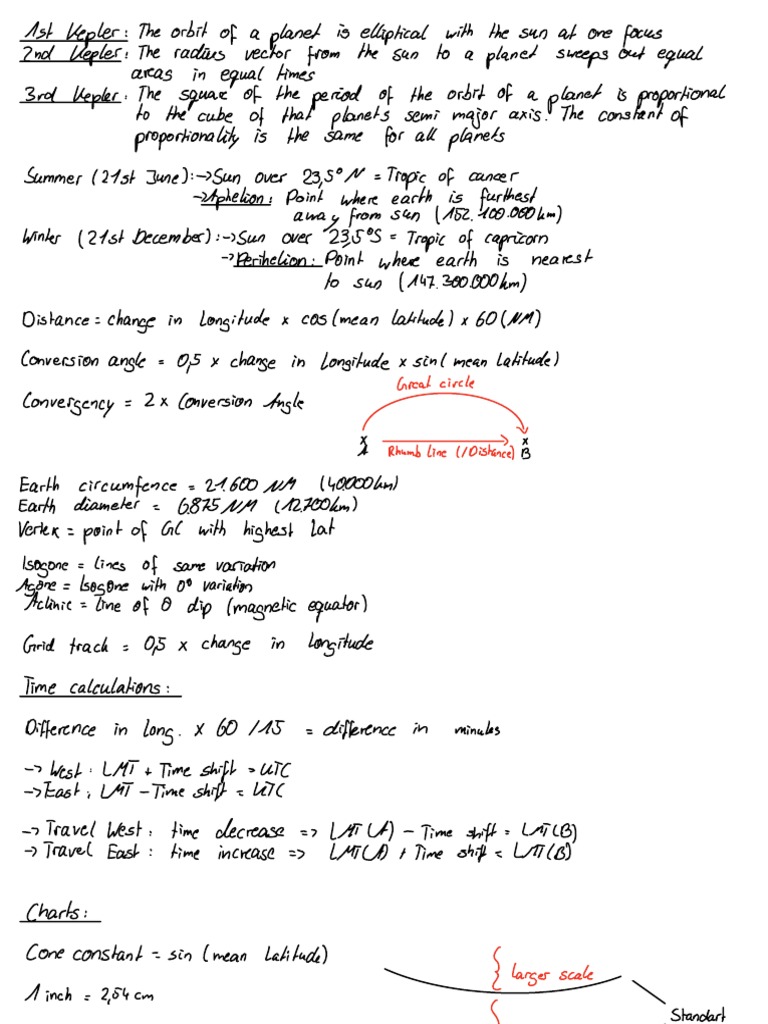 1st Kepler: The orbit of a planet is elliptical with the sun at one focus
2nd Kepler: The radius vector from the sun to a planet sweeps out equal
areas in equal times
3rd Kepler: The square of the period of the orbit of a planet is proportional
to the cube of that planets semi major axis. The constant of
proportionality is the same for all planets
Summer (21st June): → Sun over 23,5° N = Tropic of cancer
→ Aphelion: Point where earth is furthest
away from sun (152.100.000 km)
Winter (21st December): → Sun over 23,5°S = Tropic of capricorn
→ Perihelion: Point where earth is nearest
to sun (147.300.000 km)
Distance = change in Longitude x cos (mean latitude) x 60 (NM)
Conversion angle = 0,5 x change in Longitude x sin( mean Latitude)
Great circle
Convergency = 2 x Conversion Angle
x x
A Rhumb line (/Distance) B
Earth circumfence = 21.600 NM (40.000 km)
Earth diameter = 6.875 NM (12.700 km)
Vertex = point of GC with highest Lat
Isogone = lines of same variation
Agone = Isogone with 0° variation
Aclinic = line of 0 dip (magnetic equator)
Grid track = 0,5 x change in longitude
Time calculations:
Difference in long. x 60 / 15 = difference in minutes
→ West: LMT + Time shift = UTC
→ East: LMT - Time shift = UTC
→ Travel West: time decrease => LMT(A) - Time shift = LMT(B)
→ Travel East: time increase => LMT(A) + Time shift = LMT(B)
Charts:
Cone constant = sin (mean Latitude)
larger scale
1 inch = 2,54 cm
Standart